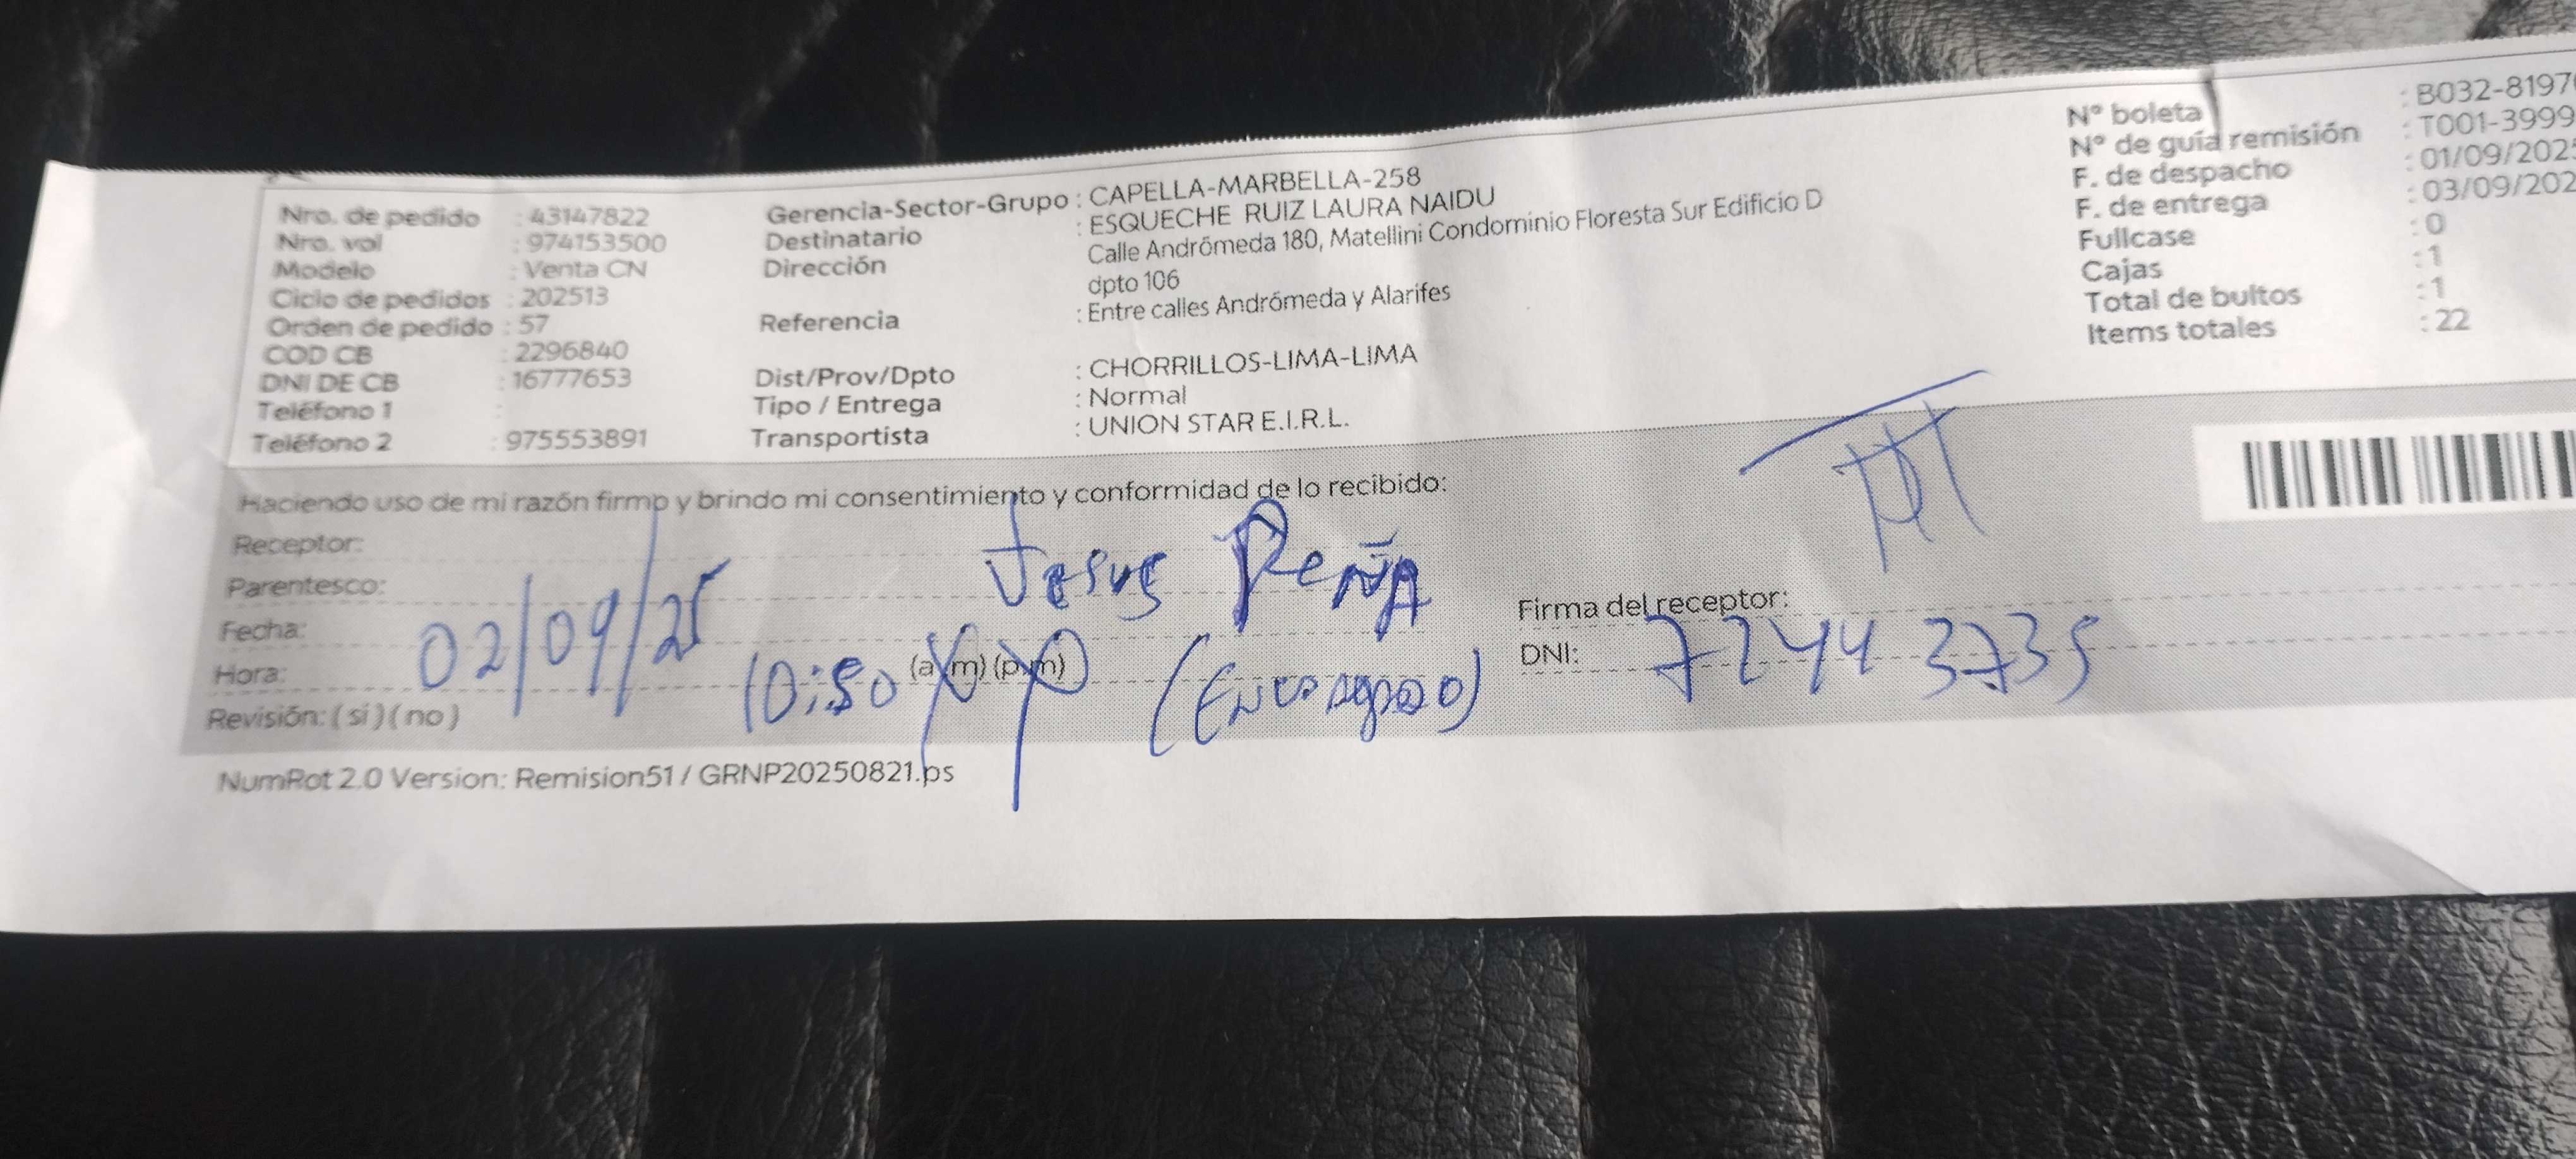 Nro. de pedido : 43147822
Nro. vol : 974153500
Modelo : Venta CN
Ciclo de pedidos : 202513
Orden de pedido : 57
COD CB : 2296840
DNI DE CB : 16777653
Teléfono 1 :
Teléfono 2 : 975553891
Gerencia-Sector-Grupo : CAPELLA-MARBELLA-258
Destinatario : ESQUECHE RUIZ LAURA NAIDU
Dirección Calle Andrómeda 180, Matellini Condominio Floresta Sur Edificio D
dpto 106
Referencia : Entre calles Andrómeda y Alarifes
Dist/Prov/Dpto : CHORRILLOS-LIMA-LIMA
Tipo / Entrega : Normal
Transportista : UNION STAR E.I.R.L.
N° boleta : B032-8197
N° de guía remisión : T001-3999
F. de despacho : 01/09/202
F. de entrega : 03/09/202
Fullcase : 0
Cajas : 1
Total de bultos : 1
Items totales : 22
Haciendo uso de mi razón firmo y brindo mi consentimiento y conformidad de lo recibido:
Receptor: Jesus PeÑA
Parentesco:
Fecha: 02/09/25
Hora: 10:50 (a.m) (p.m) (Encargado)
Revisión: ( sí ) ( no )
Firma del receptor:
DNI: 72443735
NumRot 2.0 Version: Remision51 / GRNP20250821.ps